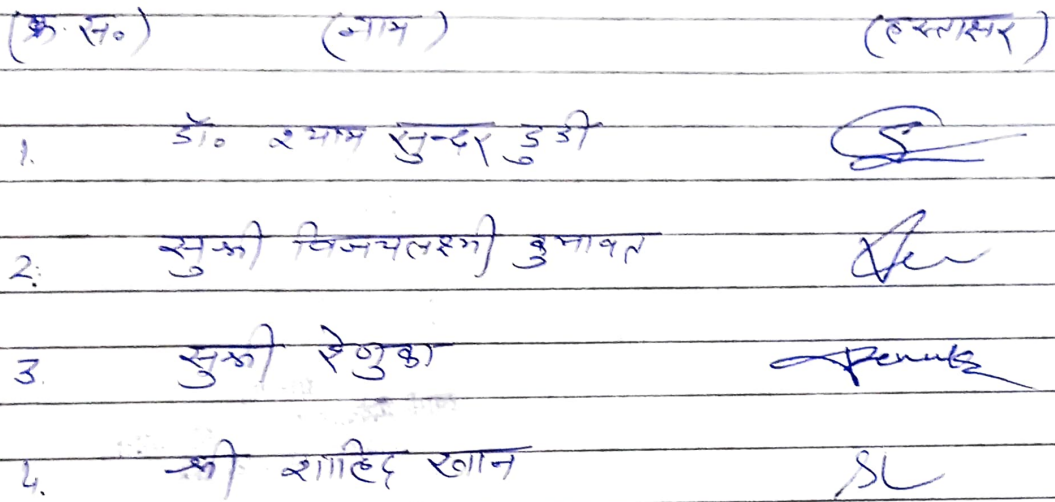 (क्र. सं०) (नाम) (हस्ताक्षर)
1. डॉ० श्याम सुन्दर डुडी
2. सुश्री विजयलक्ष्मी कुमावत
3. सुश्री रेणुका Renuka
4. श्री शाहिद खान